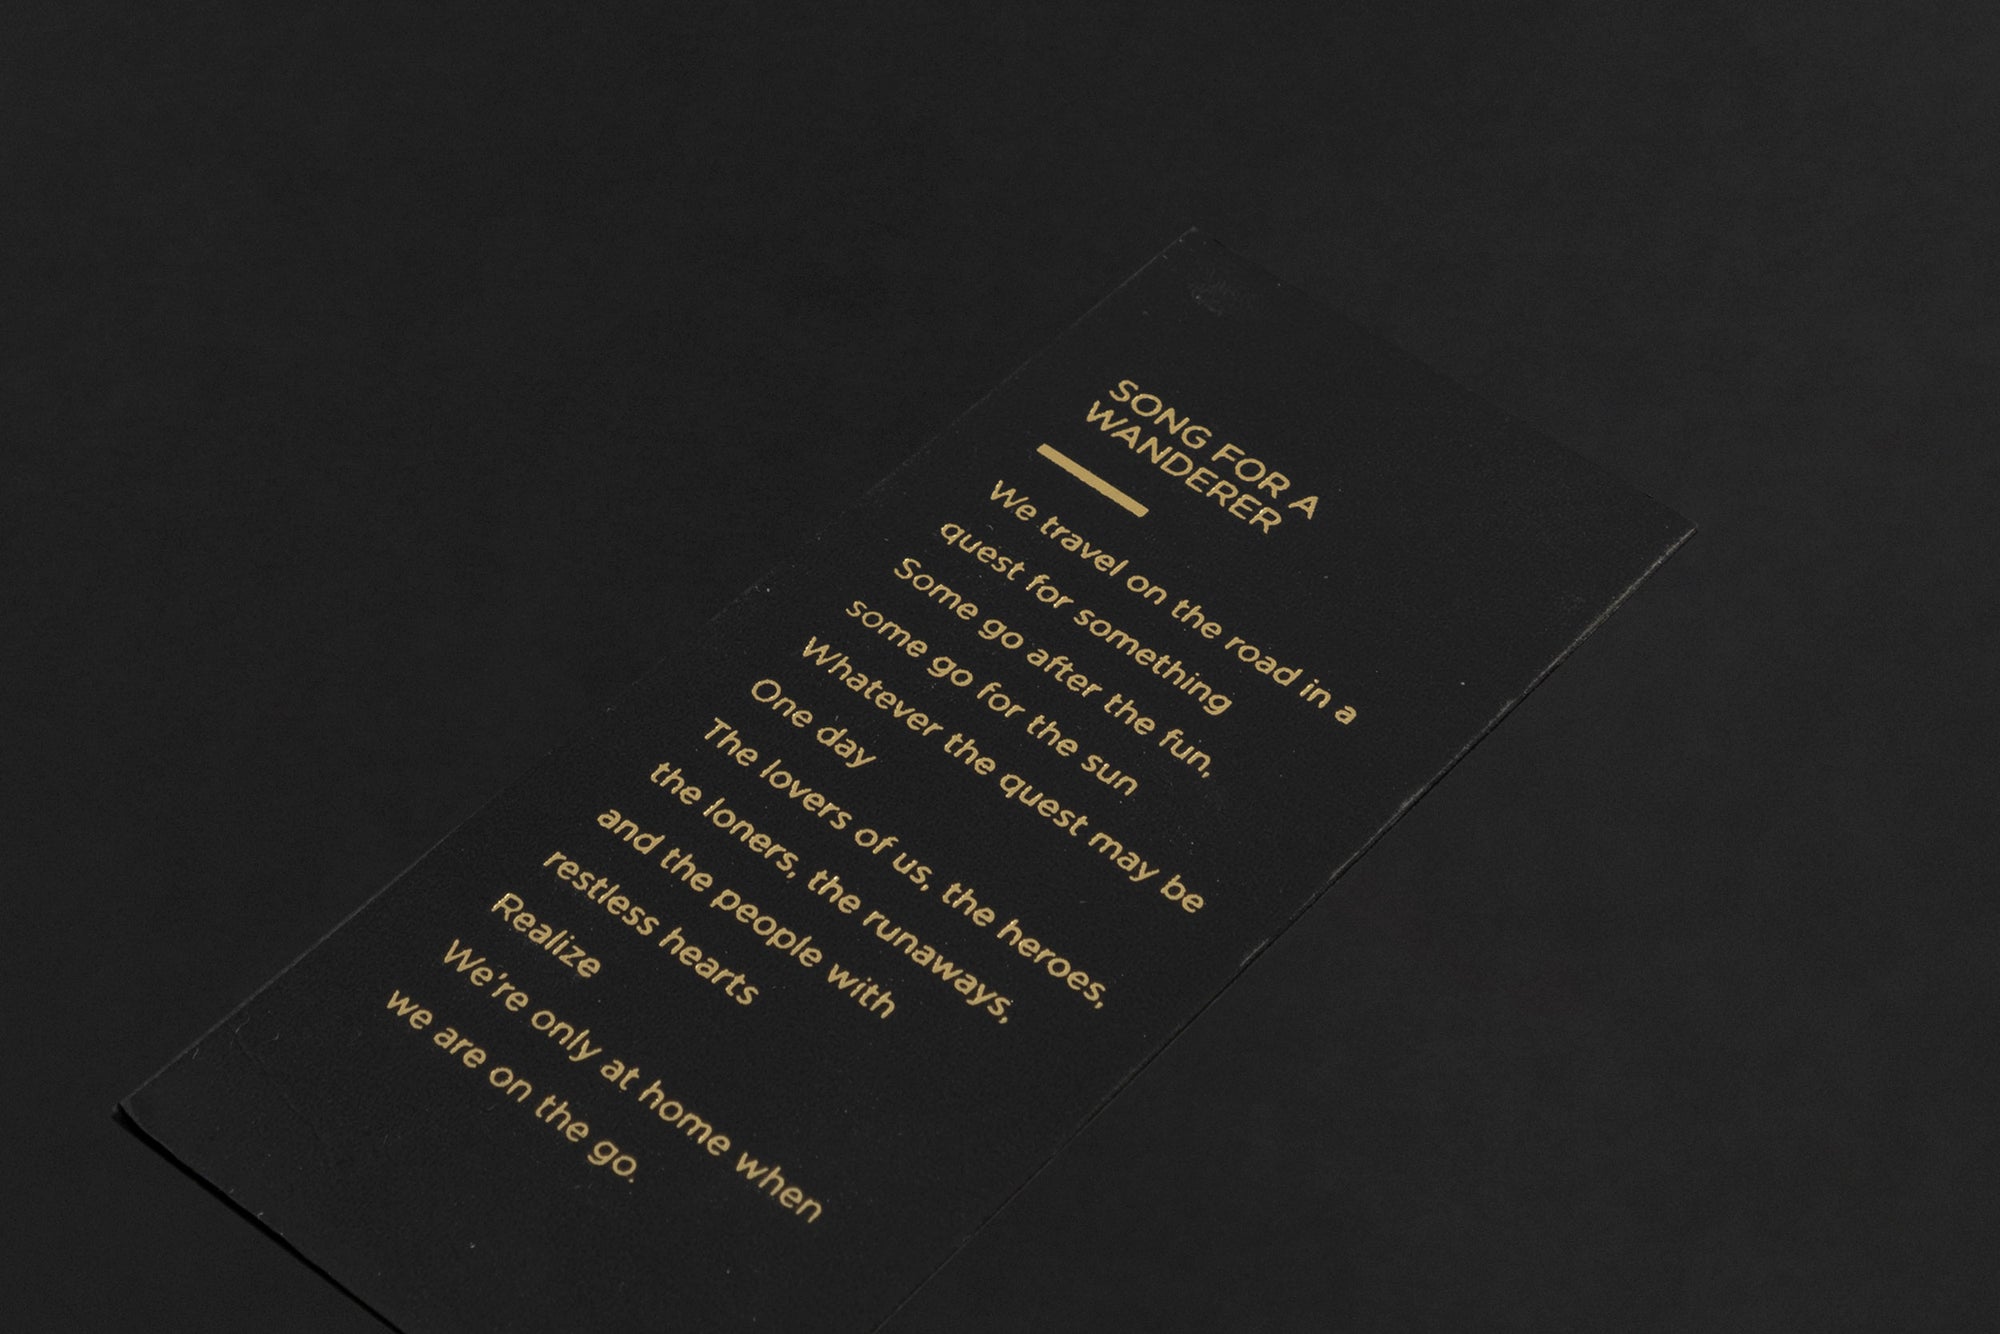 SONG FOR A
WANDERER
We travel on the road in a
quest for something
Some go after the fun,
some go for the sun
Whatever the quest may be
One day
The lovers of us, the heroes,
the loners, the runaways,
and the people with
restless hearts
Realize
We're only at home when
we are on the go.